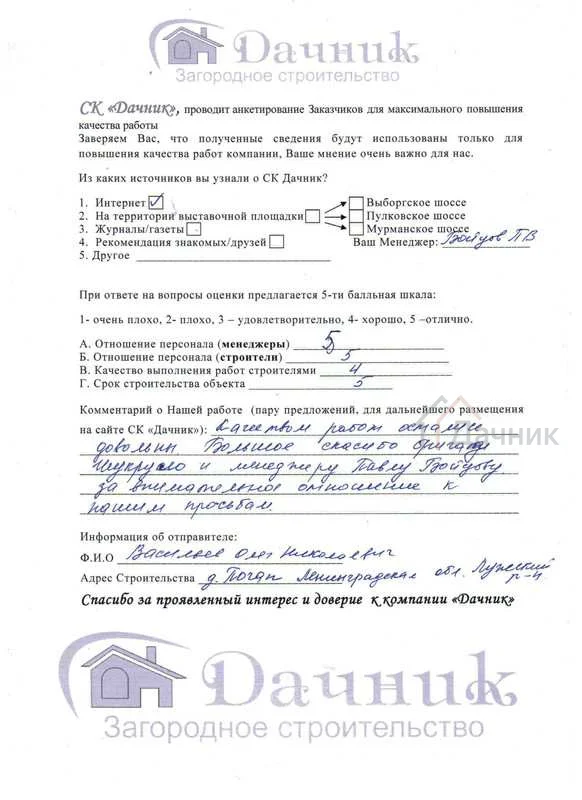 Дачник
Загородное строительство
СК «Дачник», проводит анкетирование Заказчиков для максимального повышения
качества работы
Заверяем Вас, что полученные сведения будут использованы только для
повышения качества работ компании, Ваше мнение очень важно для нас.
Из каких источников вы узнали о СК Дачник?
1. Интернет
Выборгское шоссе
2. На территории выставочной площадки
Пулковское шоссе
3. Журналы/газеты
Мурманское шоссе
4. Рекомендация знакомых/друзей
Ваш Менеджер: Войцов ПВ
5. Другое
При ответе на вопросы оценки предлагается 5-ти балльная шкала:
1- очень плохо, 2- плохо, 3 – удовлетворительно, 4- хорошо, 5 –отлично.
А. Отношение персонала (менеджеры) 5
Б. Отношение персонала (строители) 5
В. Качество выполнения работ строителями 4
Г. Срок строительства объекта 5
Комментарий о Нашей работе (пару предложений, для дальнейшего размещения
на сайте СК «Дачник»): Качеством работ остались
Дачник
довольны. Большое спасибо бригаде
и менеджеру Павлу Войцову
за внимательное отношение к
нашим просьбам
Информация об отправителе:
Ф.И.О Васильев Олег Николаевич
Адрес Строительства д. Ленинградская обл. Лужский
р-н
Спасибо за проявленный интерес и доверие к компании «Дачник»
Дачник
Загородное строительство